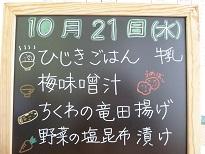 10月21日(水)
ひじきごはん 牛乳
梅味噌汁
ちくわの竜田揚げ
野菜の塩昆布漬け